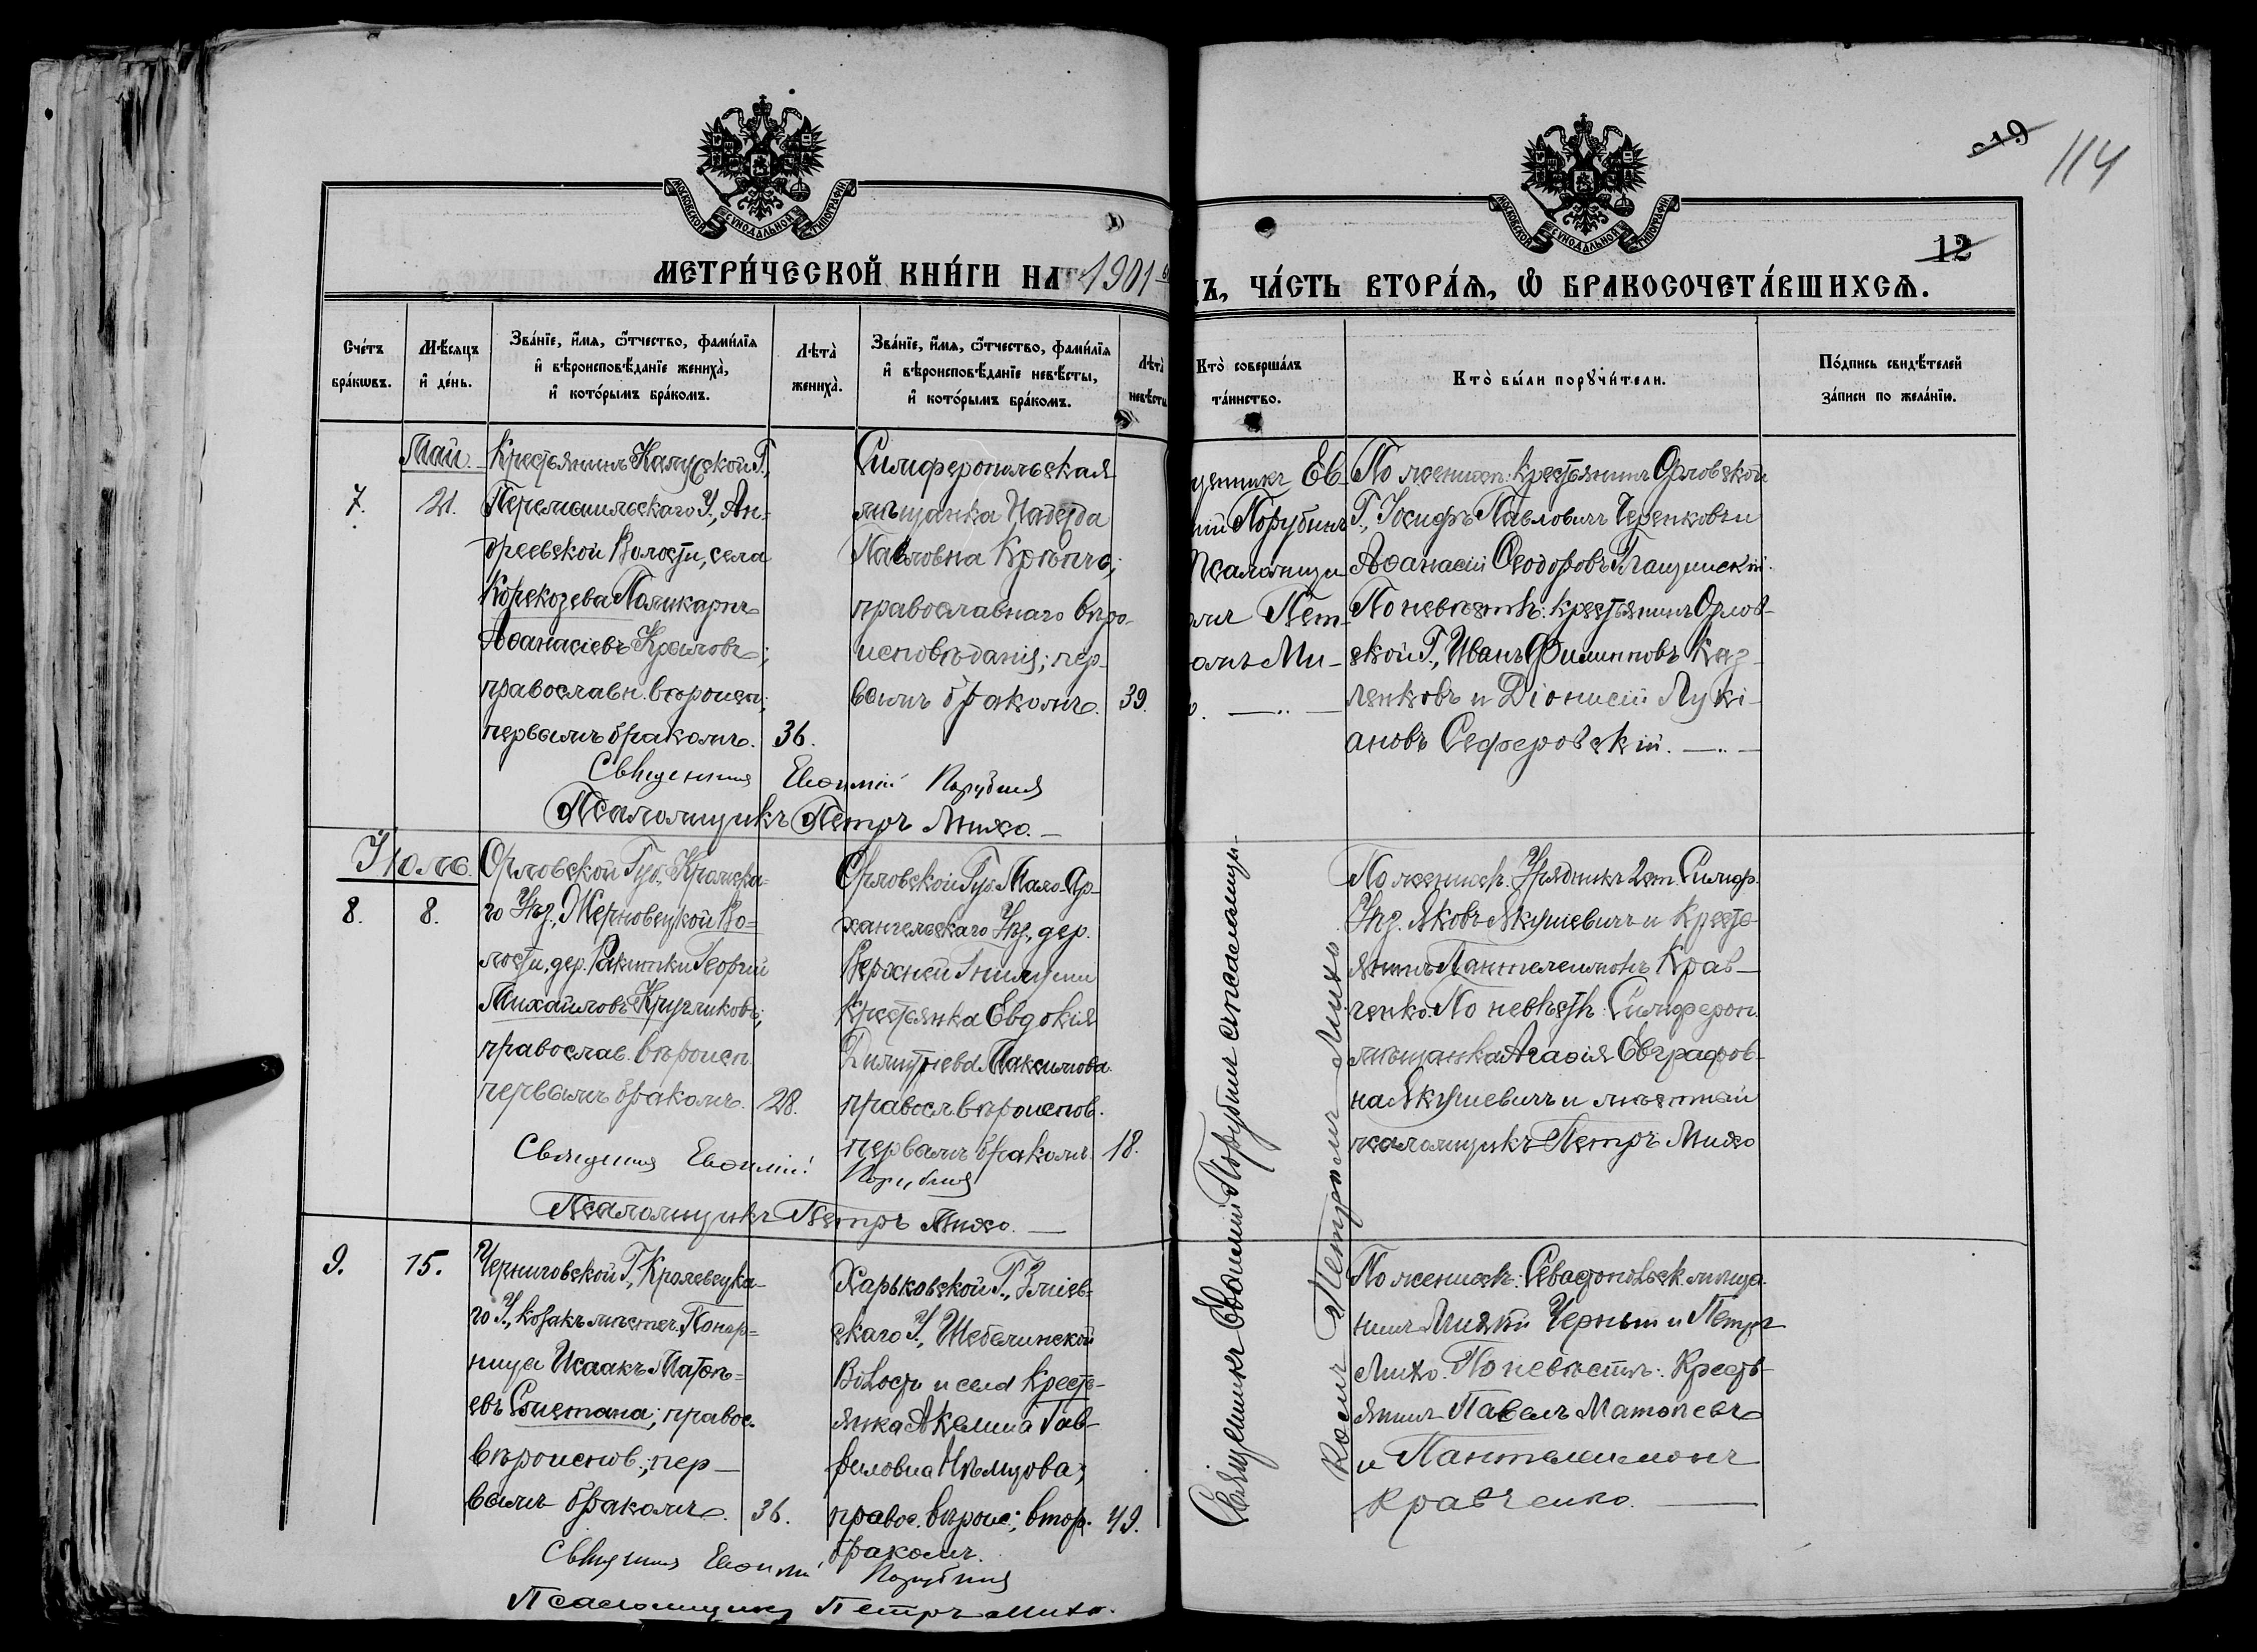 19
114
12
МОСКОВСКОЙ СѴНОДАЛЬНОЙ ТИПОГРАФІИ
МОСКОВСКОЙ СѴНОДАЛЬНОЙ ТИПОГРАФІИ
МЕТРИ́ЧЕСКОЙ КНИ́ГИ НА 1901
ЧА́СТЬ ВТОРА́Ѧ, Ѡ҆ БРАКОСОЧЕТА́ВШИХСѦ.
Сче́тъ бра́кѡвъ.
Мѣ́сѧцъ и҆ де́нь.
Зва́нїе, и҆́мѧ, ѻ҆́тчество, фами́лїѧ
и҆ вѣроисповѣ́данїе жениха̀,
и҆ кото́рымъ бра́комъ.
Лѣта̀ жениха̀.
Зва́нїе, и҆́мѧ, ѻ҆́тчество, фами́лїѧ
и҆ вѣроисповѣ́данїе невѣ́сты,
и҆ кото́рымъ бра́комъ.
Лѣта̀ невѣ́сты
Кто̀ соверша́лъ та́инство.
Кто̀ бы́ли порꙋчи́тели.
По́дпись свидѣ́телей за́писи по жела́нїю.
Май.
7.
21.
Крестьянинъ Калужской Г.,
Перемышльскаго У., Ан-
дреевской Волости, села
Корекозева Поликарпъ
Аѳанасіевъ Крыловъ;
православн. вѣроисп.;
первымъ бракомъ.
36.
Симферопольская
мѣщанка Надежда
Павловна
православнаго вѣро-
исповѣданія; пер-
вымъ бракомъ.
39.
щенникъ Ев-
мій Порубинъ
Псаломщи
омъ Пет-
омъ Ми-
По женихѣ: крестьянинъ Орловской
Г., Іосифъ Павловичъ Черенковъ и
Аѳанасій Ѳеодоровъ
По невѣстѣ: крестьянинъ Орлов-
ской Г., Иванъ Филипповъ Каз-
ленковъ и Діонисій Лукі-
ановъ Сеферовскій.
Священникъ Евѳимій Порубинъ
Псаломщикъ Петръ Михо.
Іюль.
8.
8.
Орловской Губ., Кромска-
го Уѣз., Жерновецкой Во-
лости, дер. Ракитки Георгій
Михайловъ Кругликовъ;
православ. вѣроисп.
первымъ бракомъ.
28.
Орловской Губ. Мало-Ар-
хангельскаго Уѣз., дер.
Верхней Гнилуши
крестьянка Евдокія
Димитріева Максимова
правосл. вѣроиспов.
первымъ бракомъ
18.
По женихѣ: Урядникъ 2 ст. Симф.
Уѣз. Яковъ Якушевичъ и кресть-
янинъ Пантелеимонъ Крав-
ченко. По невѣстѣ: Симфероп.
мѣщанка Агаѳія Евграфов-
на Якушевичъ и мѣстный
псаломщикъ Петръ Михо
Священникъ Евѳимій Порубинъ
Псаломщикъ Петръ Михо.
9.
15.
Черниговской Г., Кролевецка-
го У., козакъ мѣстеч. Понор-
ница Исаакъ Матѳѣ-
евъ Сметана; правос.
вѣроиспов.; пер-
вымъ бракомъ.
36.
Харьковской Г., Зміев-
скаго У., Шебелинской
Волости и села кресть-
янка Акелина Гав-
риловна Нѣмцова;
правос. вѣроис.; втор.
бракомъ.
49.
По женихѣ: Севастопольск. мѣща-
нинъ Черный и Петръ
Михо. По невѣстѣ: Кресть-
янинъ Павелъ Матѳѣевъ
и Пантелеимонъ
Кравченко.
Священникъ Евѳимій Порубинъ
Псаломщикъ Петръ Михо.
Священникъ Евѳимій Порубинъ съ псаломщи-
комъ Петромъ Михо